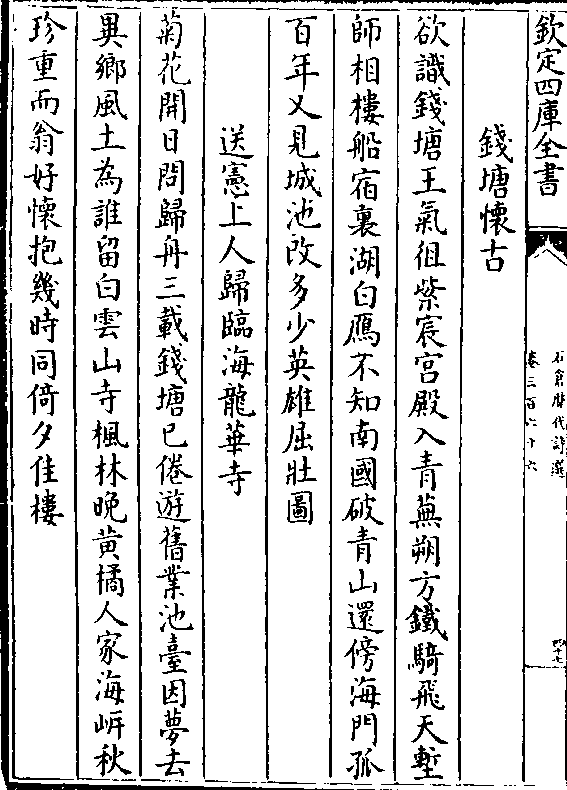 欽定四庫全書
石倉歷代詩選
卷三百六十六
四十七
錢塘懷古
欲識錢塘王氣徂紫宸宫殿入青蕪朔方鐵騎飛天塹
師相樓船宿裏湖白鴈不知南國破青山還傍海門孤
百年又見城池改多少英雄屈壯圖
送憲上人歸臨海龍華寺
菊花開日問歸舟三載錢塘已倦遊舊業池臺因夢去
異鄉風土為誰留白雲山寺楓林晚黄橘人家海㟁秋
珍重而翁好懷抱幾時同倚夕佳樓